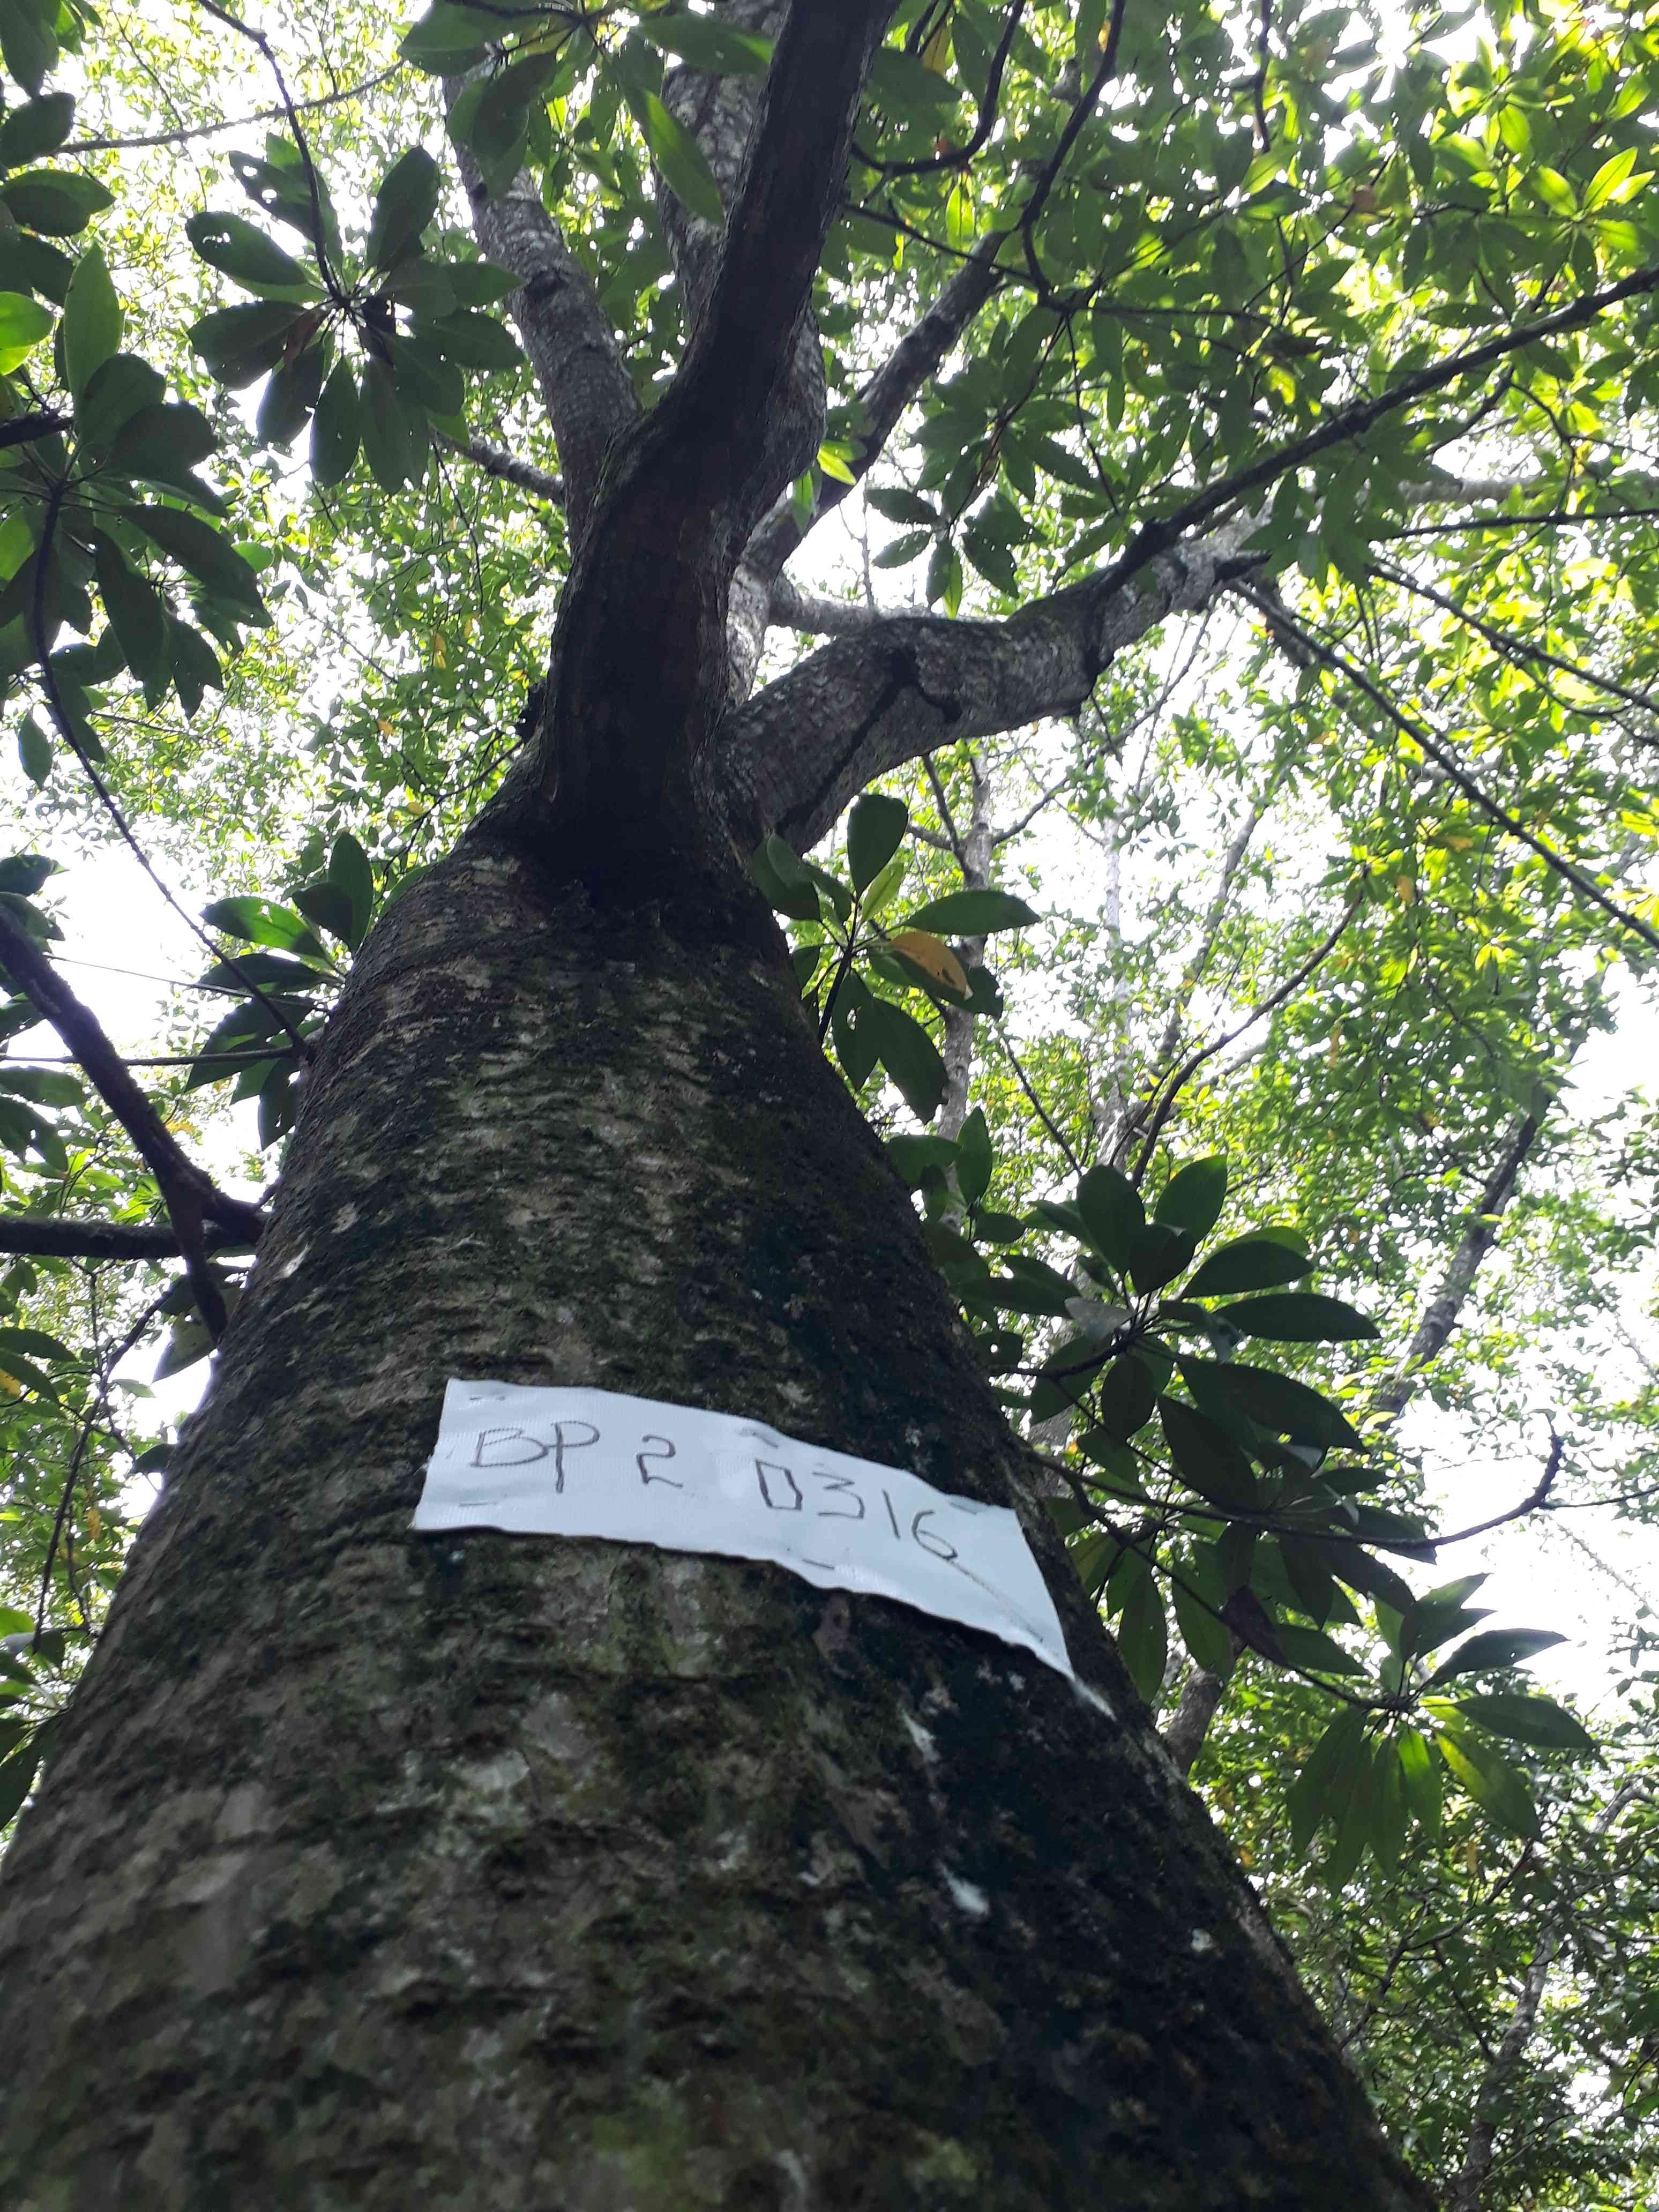 BP 2 0316